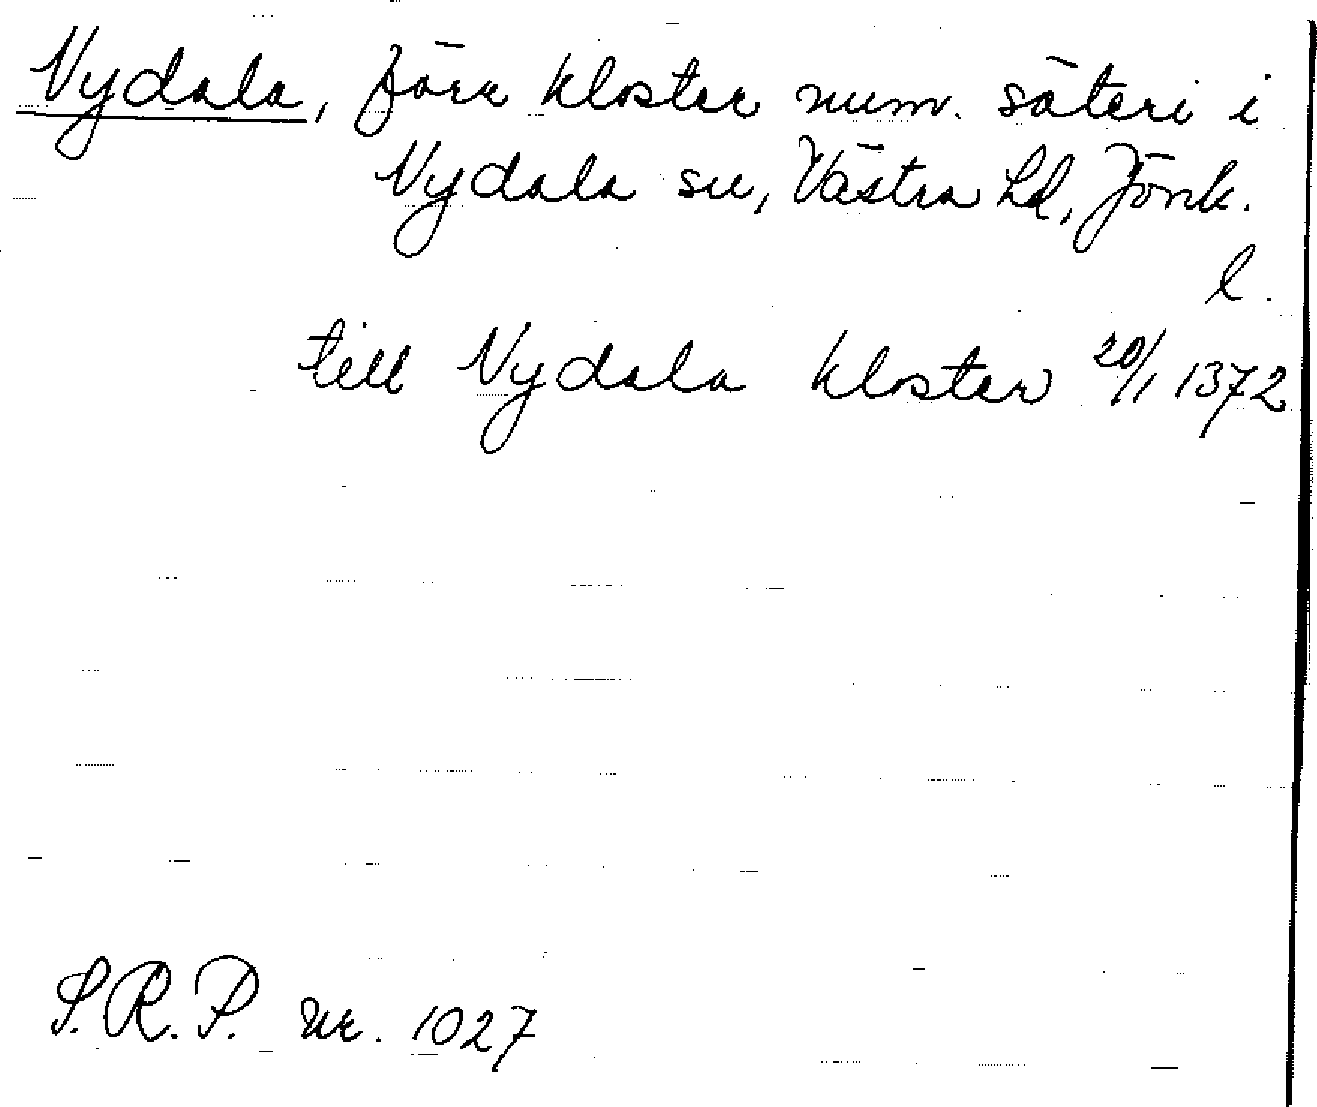 Nydala, förr kloster num. säteri i
Nydala sn, Västra hd, Jönk.
l.
till Nydala kloster 20/1 1372
S.R.P. nr. 1027